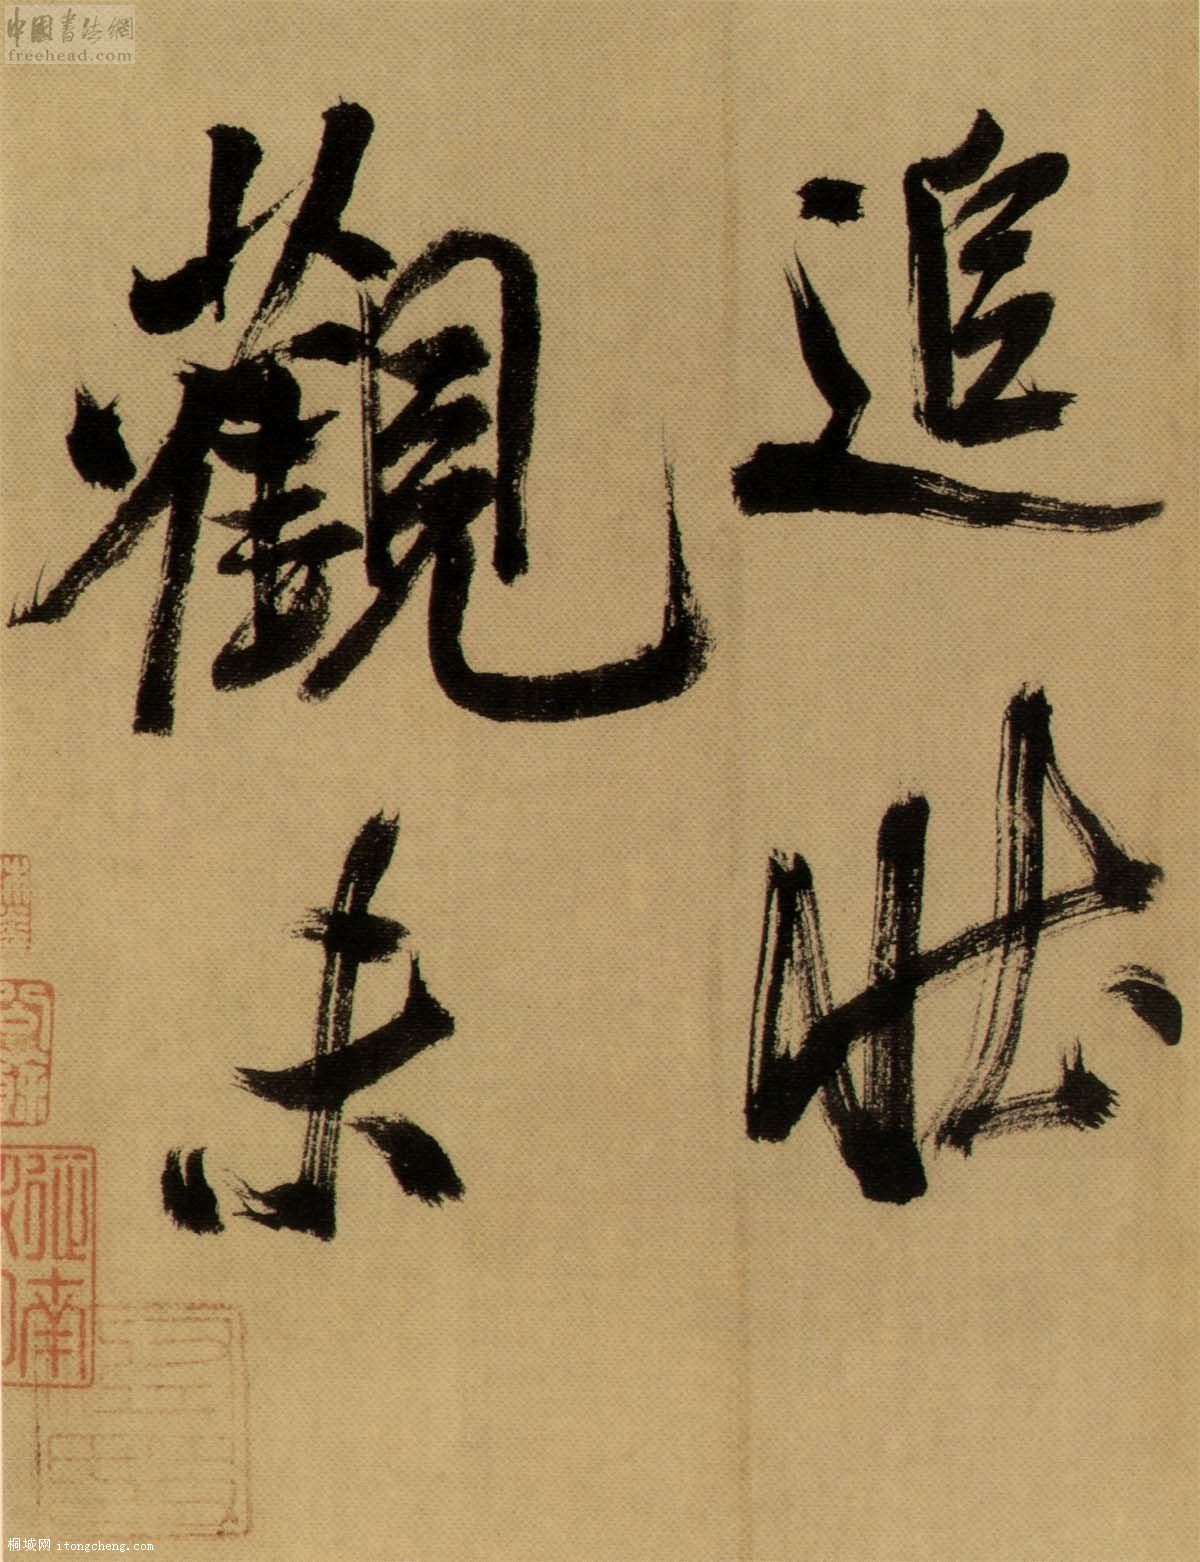 中國書法網
freehead.com
追壯
觀未
桐城网 itongcheng.com